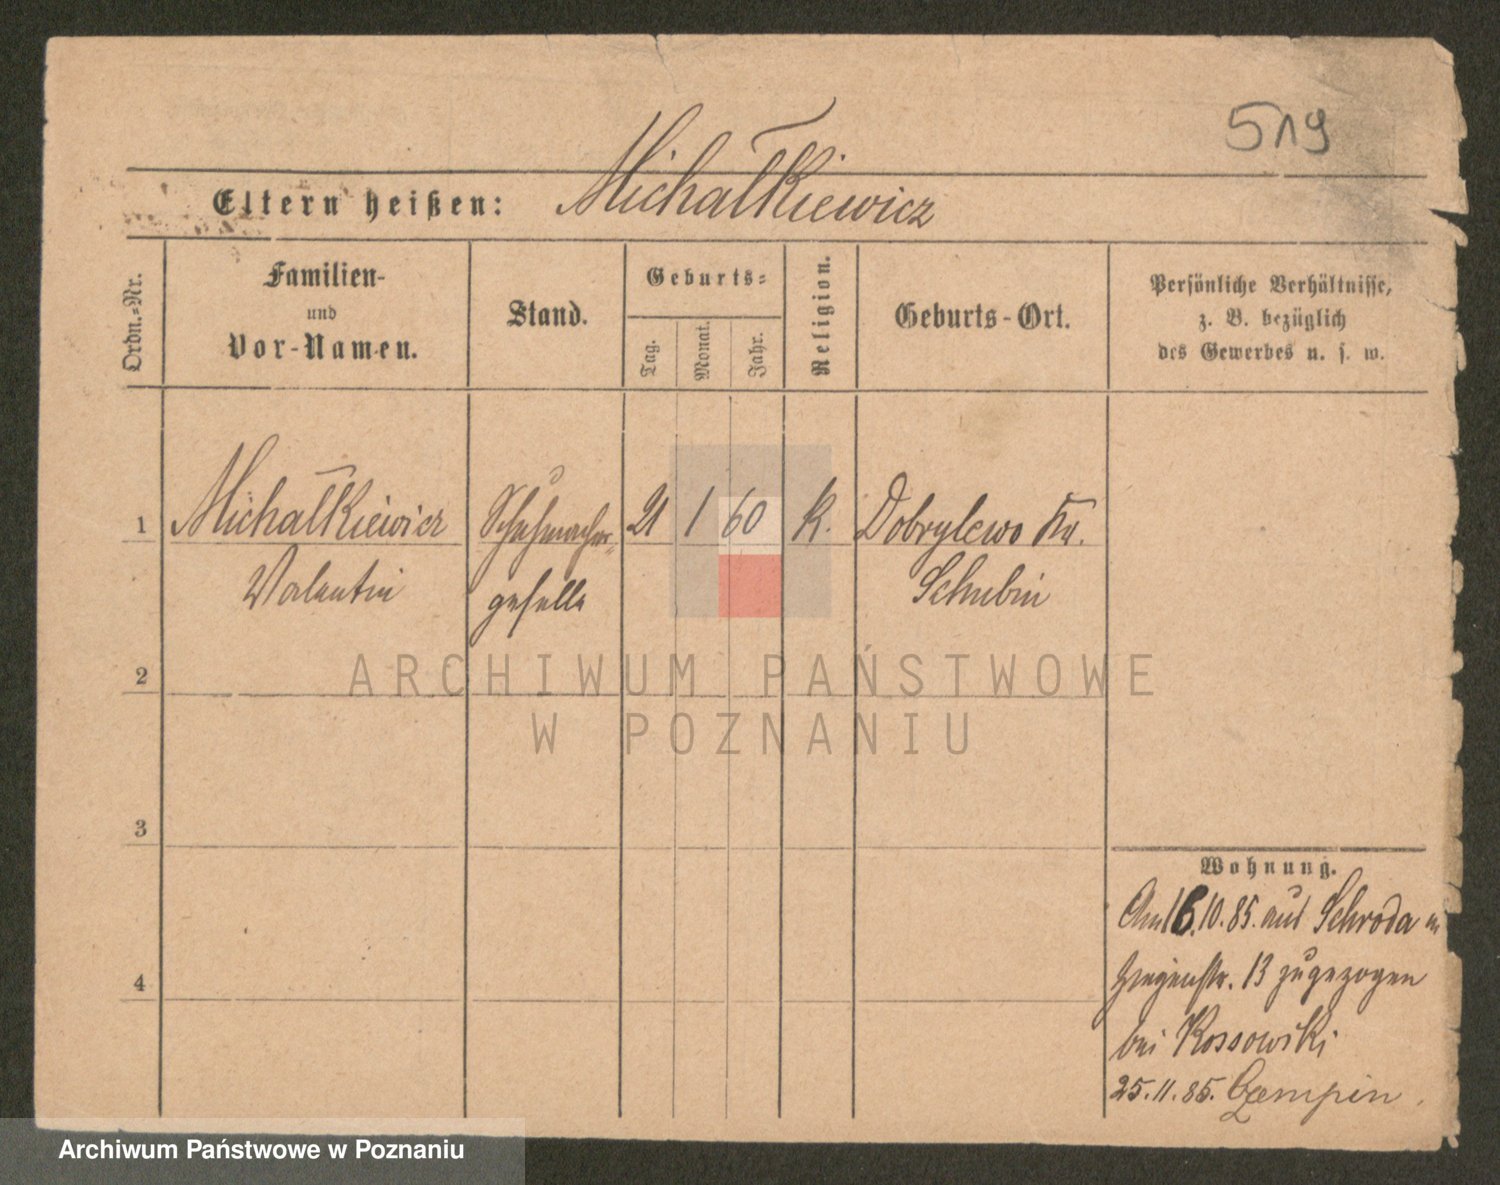 519
Eltern heißen: Michałkiewicz
Ordn.-Nr.
Familien-
und
Vor-Namen.
Stand.
Geburts-
Tag.
Monat.
Jahr.
Religion.
Geburts-Ort.
Persönliche Verhältnisse,
z. B. bezüglich
des Gewerbes u. s. w.
1 Michałkiewicz Schuhmacher- 21 1 60 K. Dobrylewo Kr.
Valentin geselle Schubin
2
ARCHIWUM PAŃSTWOWE
W POZNANIU
3
Wohnung.
Am 16.10.85. aus Schroda n.
13 zugezogen
bei Kossowski
4
25.11.85. Czempin.
Archiwum Państwowe w Poznaniu